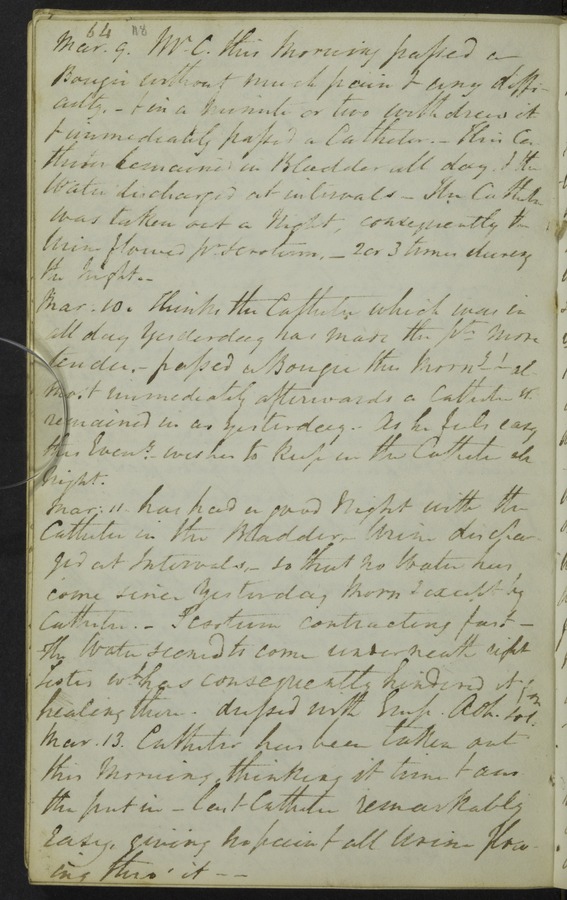 64 118
Mar. 9. Mr. C. this Morning passed a
Bougie without much pain & any diffi-
culty. - & in a minute or two withdrew it
& immediately passed a Catheter. - This Ca-
theter remained in Bladder all day, & the
Water discharged at intervals - The Catheter
was taken out a Night, consequently the
Urine flowed pr. Scrotum, - 2 or 3 times during
the Night. -
Mar. 10. Thinks the Catheter which was in
all day Yesterday has made the pts. more
tender. - passed a Bougie this Morng. & al-
most immediately afterwards a Catheter wh.
remained in as yesterday. As he feels easy
this Eveng. wishes to keep in the Catheter all
night.
Mar. 11 has had a good Night with the
Catheter in the Bladder - Urine dischar-
ged at Intervals - so that no Water has
come since Yesterday Morng. except by
Catheter. - Scrotum contracting fast -
The Water seemed to come underneath right
Testes wh. has consequently hindered it from
healing there. dressed with Emp. Adh.
Mar. 13. Catheter has been taken out
this Morning, thinking it time & ano
ther put in - last Catheter remarkably
Easy, giving no pain & all Urine flow-
ing thro' it - -